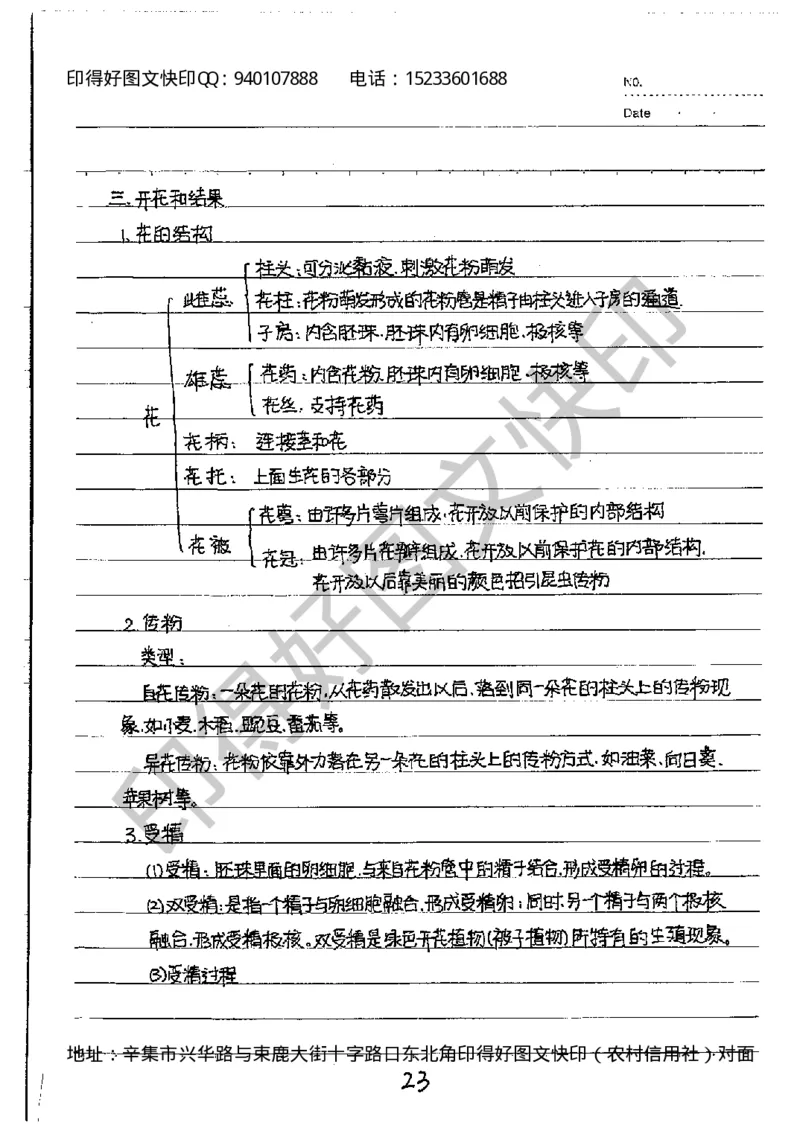 印得好图文快印QQ：940107888 电话：15233601688
NO.
Date
三.开花和结果
1.花的结构
花
雌蕊
柱头：可分泌黏液.刺激花粉萌发
花柱：花粉萌发形成的花粉管是精子由柱头进入子房的通道.
子房：内含胚珠.胚珠内有卵细胞.极核等
雄蕊
花药：内含花粉.胚珠内有卵细胞.极核等
花丝.支持花药
花柄：连接茎和花
花托：上面生花的各部分
花被
花萼：由许多片萼片组成.花开放以前保护的内部结构
花冠：由许多片花瓣组成.花开放以前保护花的内部结构.
花开放以后靠美丽的颜色招引昆虫传粉
2.传粉
类型：
自花传粉：一朵花的花粉.从花药散发出以后.落到同一朵花的柱头上的传粉现
象.如小麦.水稻.豌豆.番茄等。
异花传粉：花粉依靠外力落在另一朵花的柱头上的传粉方式.如油菜.向日葵.
苹果树等。
3.受精
(1)受精：胚珠里面的卵细胞.与来自花粉管中的精子结合.形成受精卵的过程。
(2)双受精：是指一个精子与卵细胞融合.形成受精卵；同时.另一个精子与两个极核
融合.形成受精极核。双受精是绿色开花植物(被子植物)所特有的生殖现象。
(3)受精过程
地址：辛集市兴华路与束鹿大街十字路口东北角印得好图文快印（农村信用社）对面
23
印得好图文快印